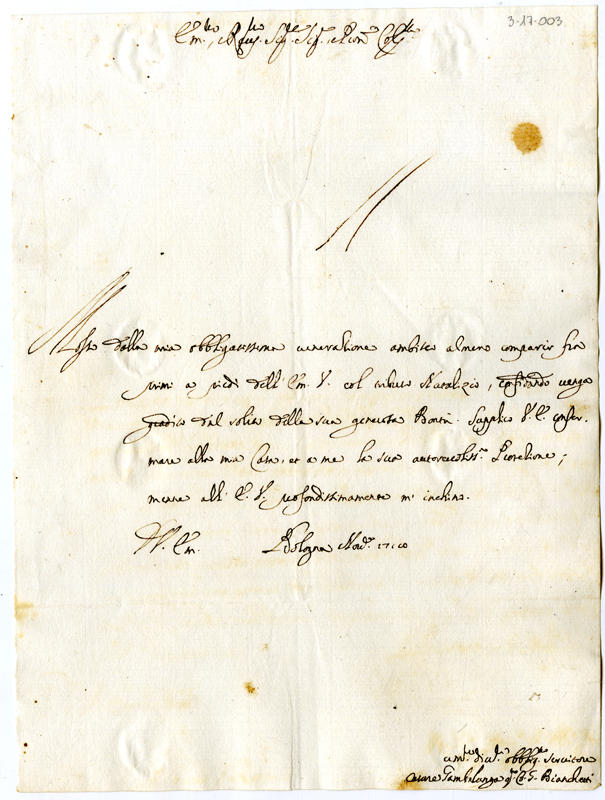 3-17-003
Mosso dalla mia obbligatissima venerazione ambisco almeno comparir fra
primi a piedi dell' Em. V. col tributo Natalizio, confidando venga
gradito dal solito della sua generosa Bontà. Supplico V. E. confer-
mare alla mia Casa, et a me la sua autorevoliss.ª Protezione;
mentre all' E. V. profondissimamente m' inchino.
D. V. Em. Bologna 1710
obblig.mo Servitore
Cesare Bianchetti